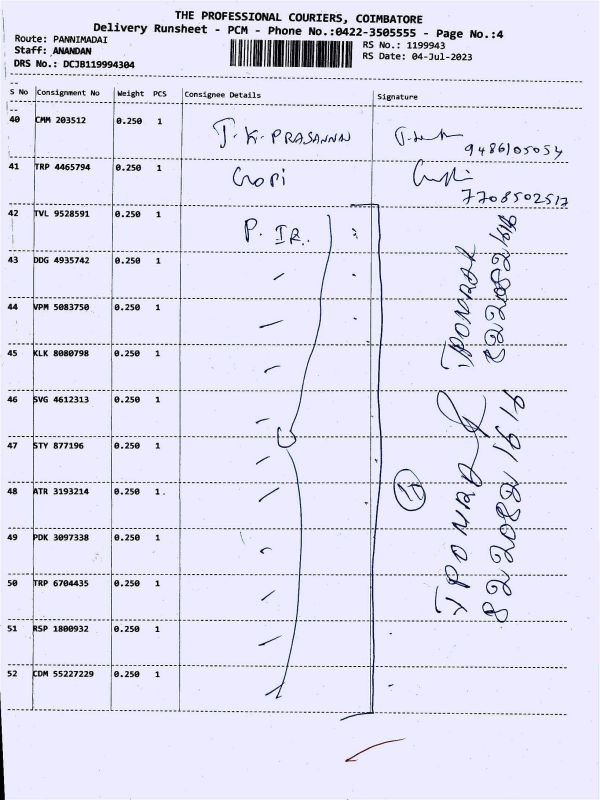 THE PROFESSIONAL COURIERS, COIMBATORE
Delivery Runsheet - PCM - Phone No.:0422-3505555 - Page No.:4
Route: PANNIMADAI
Staff: ANANDAN
DRS No.: DCJB119994304
RS No.: 1199943
RS Date: 04-Jul-2023
S No Consignment No Weight PCS Consignee Details Signature
40 CMM 203512 0.250 1 J.K. PRASANNA
9486105054
41 TRP 4465794 0.250 1 Gopi
7708502517
42 TVL 9528591 0.250 1 P. IR.
43 DDG 4935742 0.250 1
44 VPM 5083750 0.250 1
45 KLK 8080798 0.250 1
46 SVG 4612313 0.250 1
47 STY 877196 0.250 1
48 ATR 3193214 0.250 1
49 PDK 3097338 0.250 1
50 TRP 6704435 0.250 1
51 RSP 1800932 0.250 1
52 CDM 55227229 0.250 1
JPONRAJ
8220821616
JPONRAJ
8220821616